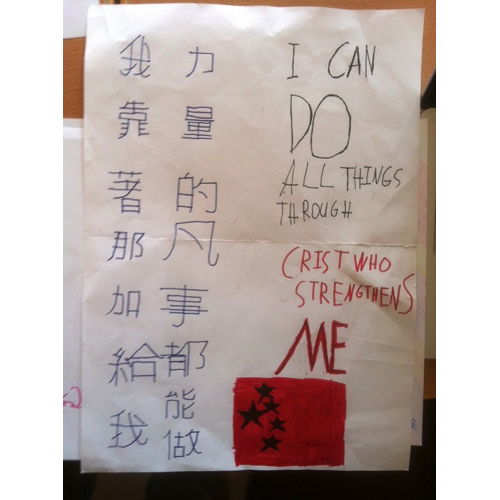 我靠著那加給我
力量的凡事都能做
I CAN
DO
ALL THINGS
THROUGH
CRIST WHO
STRENGTHENS
ME